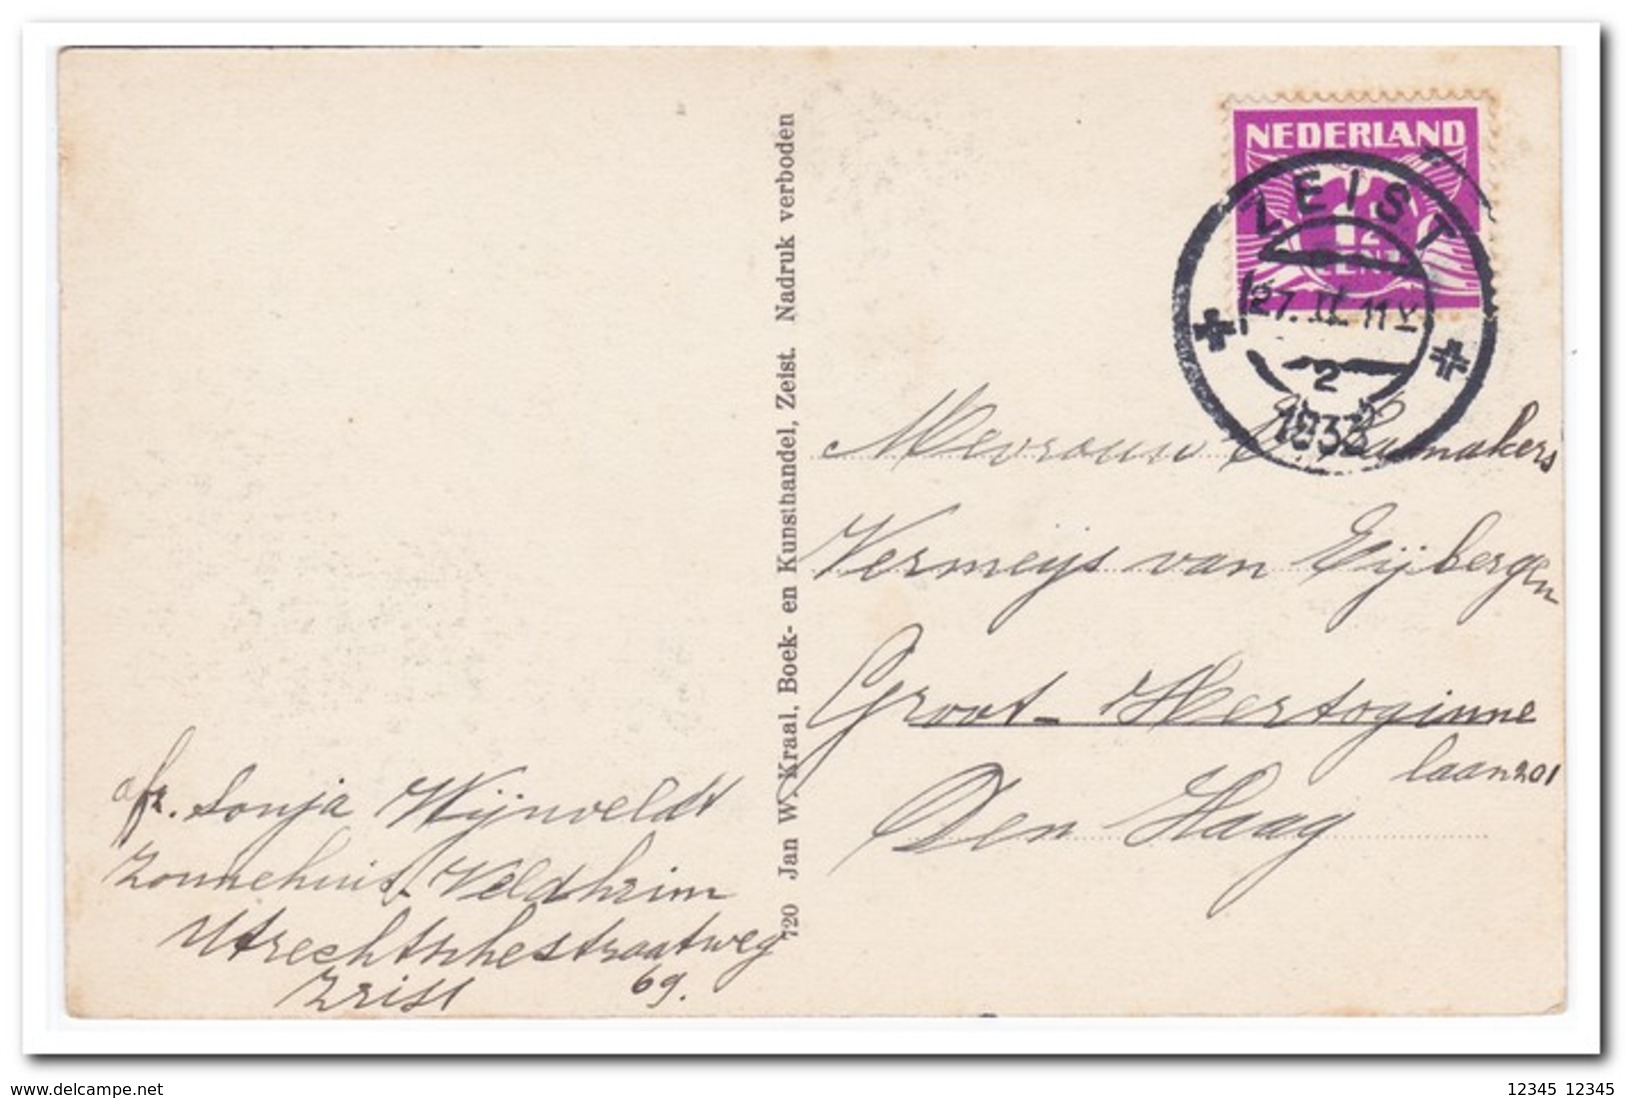 NEDERLAND
1½
CENT
ZEIST
27. 11 V
2
1933
720 Jan W. Kraal, Boek- en Kunsthandel, Zeist. Nadruk verboden
Mevrouw E. Raamakers
Vermeijs van Eijbergen
Groot-Hertoginne
laan 201
Den Haag
afz. Sonja Wijnveldt
Zonnehuis, Veldheim
Utrechtschestraatweg
Zeist 69.
www.delcampe.net
12345 12345